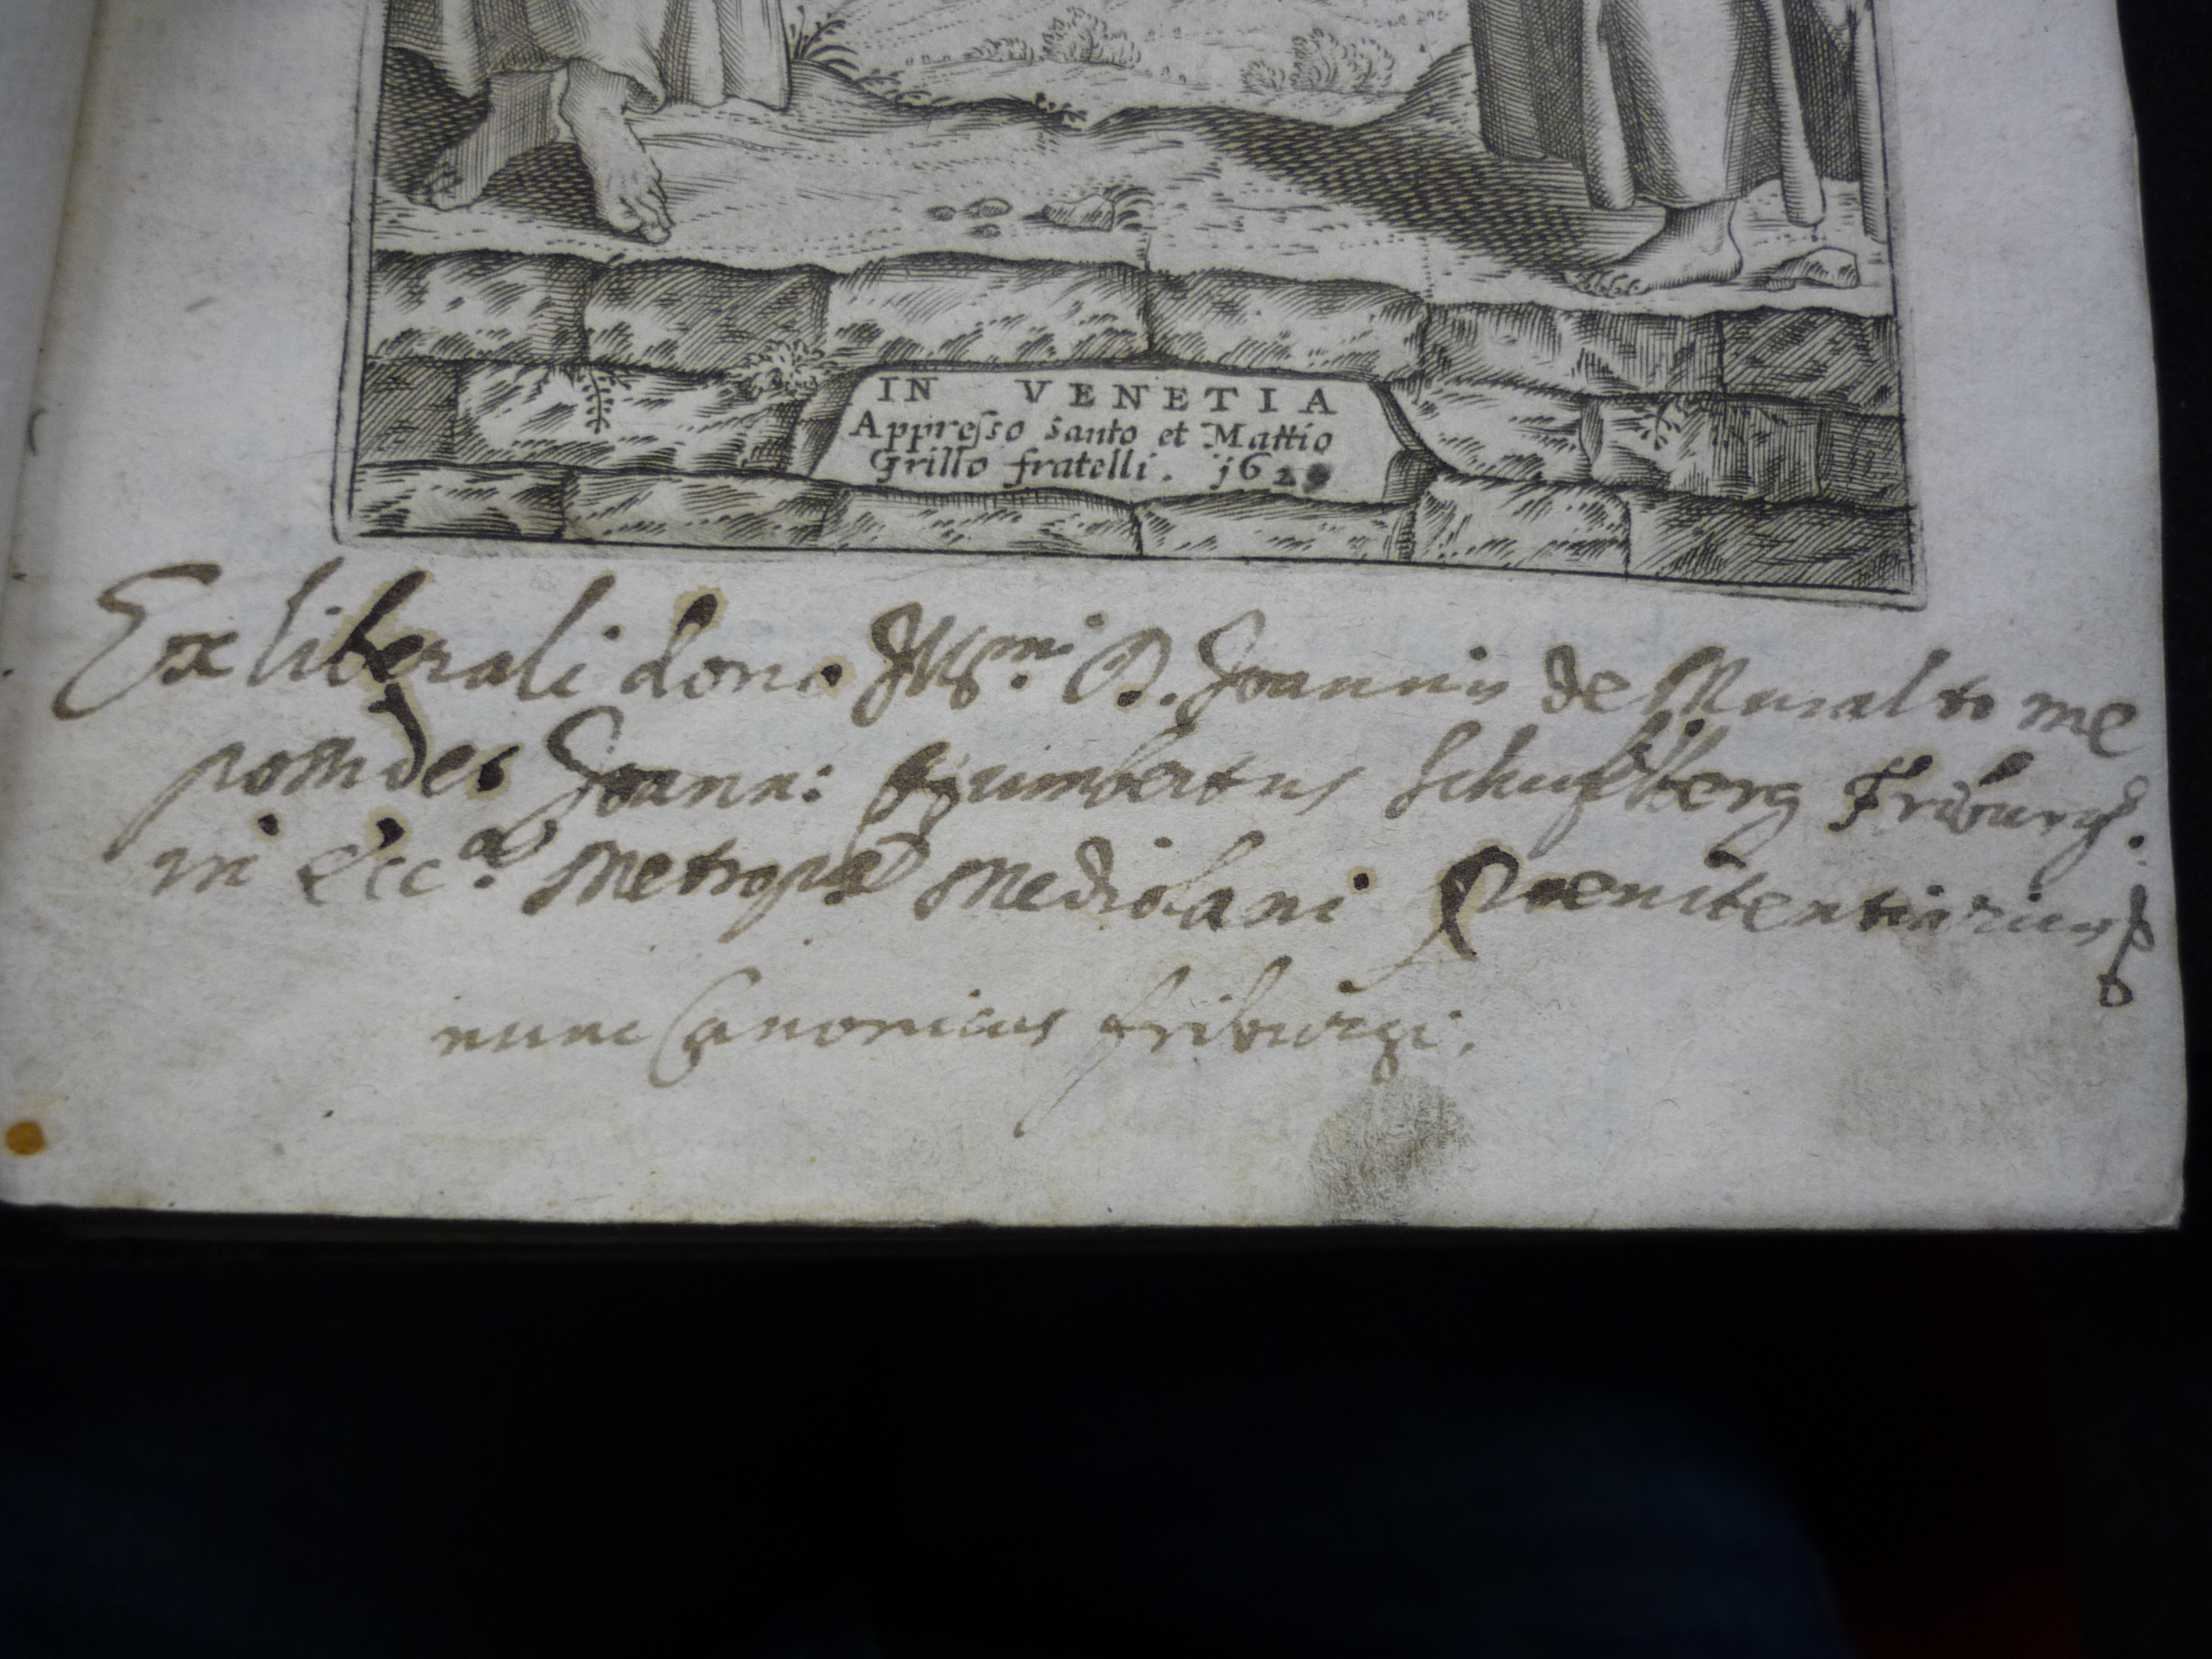 IN VENETIA
Appresso Santo et Mattio
Grillo fratelli. 162
Ex liberali dono Illmi. D. Joannis de Muralto me
possidet Joann: Humbertus Friburg.
in Ecca. Metropna Mediolani Poenitentiarius
nunc Canonicus friburgi.